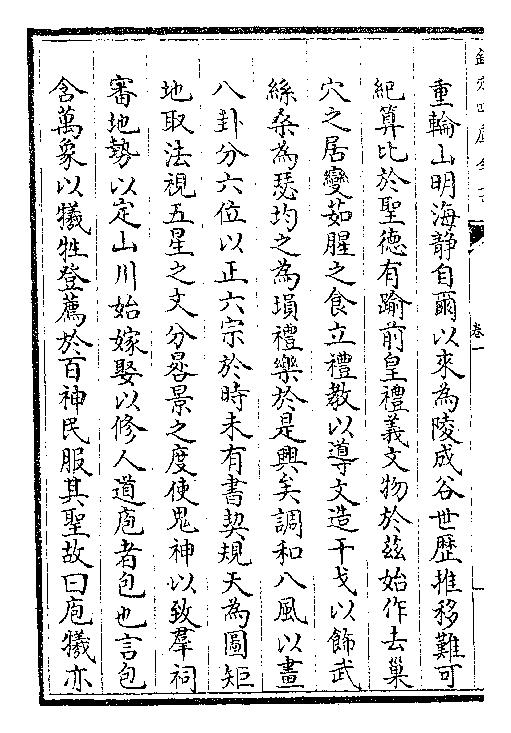 重輪山明海靜自爾以來為陵成谷世歴推移難可
紀算比於聖德有踰前皇禮義文物於兹始作去巢
穴之居變茹腥之食立禮教以導文造干戈以飾武
絲桑為瑟均之為塤禮樂於是興矣調和八風以畫
八卦分六位以正六宗於時未有書契規天為圖矩
地取法視五星之文分晷景之度使鬼神以致羣祠
審地勢以定山川始嫁娶以修人道庖者包也言包
含萬象以犧牲登薦於百神民服其聖故曰庖犧亦
卷一